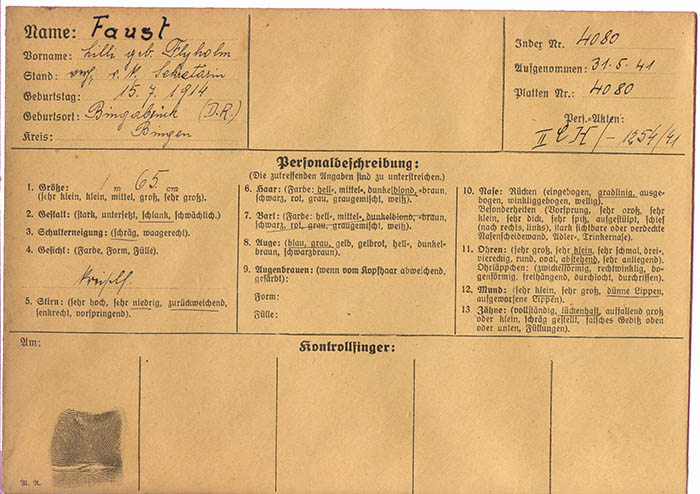 Name: Faust
Vorname: Lilli geb. Flyholm
Stand: verh. Sekretärin
Geburtstag: 15. 7. 1914
Geburtsort: (D.R.)
Kreis: Bingen
Index Nr. 4080
Aufgenommen: 31. 5. 41
Platten Nr.: 4080
Pers.-Akten:
II 1254/41
Personalbeschreibung:
(Die zutreffenden Angaben sind zu unterstreichen.)
1. Größe: 1 m 65 cm
(sehr klein, klein, mittel, groß, sehr groß).
2. Gestalt: (stark, untersetzt, schlank, schwächlich.)
3. Schulterneigung: (schräg, waagerecht.)
4. Gesicht: (Farbe, Form, Fülle).
5. Stirn: (sehr hoch, sehr niedrig, zurückweichend,
senkrecht, vorspringend).
6. Haar: (Farbe: hell-, mittel-, dunkelblond, -braun,
schwarz, rot, grau, graugemischt, weiß).
7. Bart: (Farbe: hell-, mittel-, dunkelblond, -braun,
schwarz, rot, grau, graugemischt, weiß).
8. Auge: (blau, grau, gelb, gelbrot, hell-, dunkel-
braun, schwarzbraun).
9. Augenbrauen: (wenn vom Kopfhaar abweichend,
gefärbt):
Form:
Fülle:
10. Nase: Rücken (eingebogen, gradlinig, ausge-
bogen, winkliggebogen, wellig).
Besonderheiten (Vorsprung, sehr groß, sehr
klein, sehr dick, sehr spitz, aufgestülpt, schief
(nach rechts, links), stark sichtbare oder verdeckte
Nasenscheidewand, Adler-, Trinkernase).
11. Ohren: (sehr groß, sehr klein, sehr schmal, drei-,
viereckig, rund, oval, abstehend, sehr anliegend).
Ohrläppchen: (zwickelförmig, rechtwinklig, bo-
genförmig, freihängend, durchlocht, durchrissen).
12. Mund: (sehr klein, sehr groß, dünne Lippen,
aufgeworfene Lippen).
13 Zähne: (vollständig, lückenhaft, auffallend groß
oder klein, schräg gestellt, falsches Gebiß oben
oder unten, Füllungen).
Am:
Kontrollfinger:
M. N.